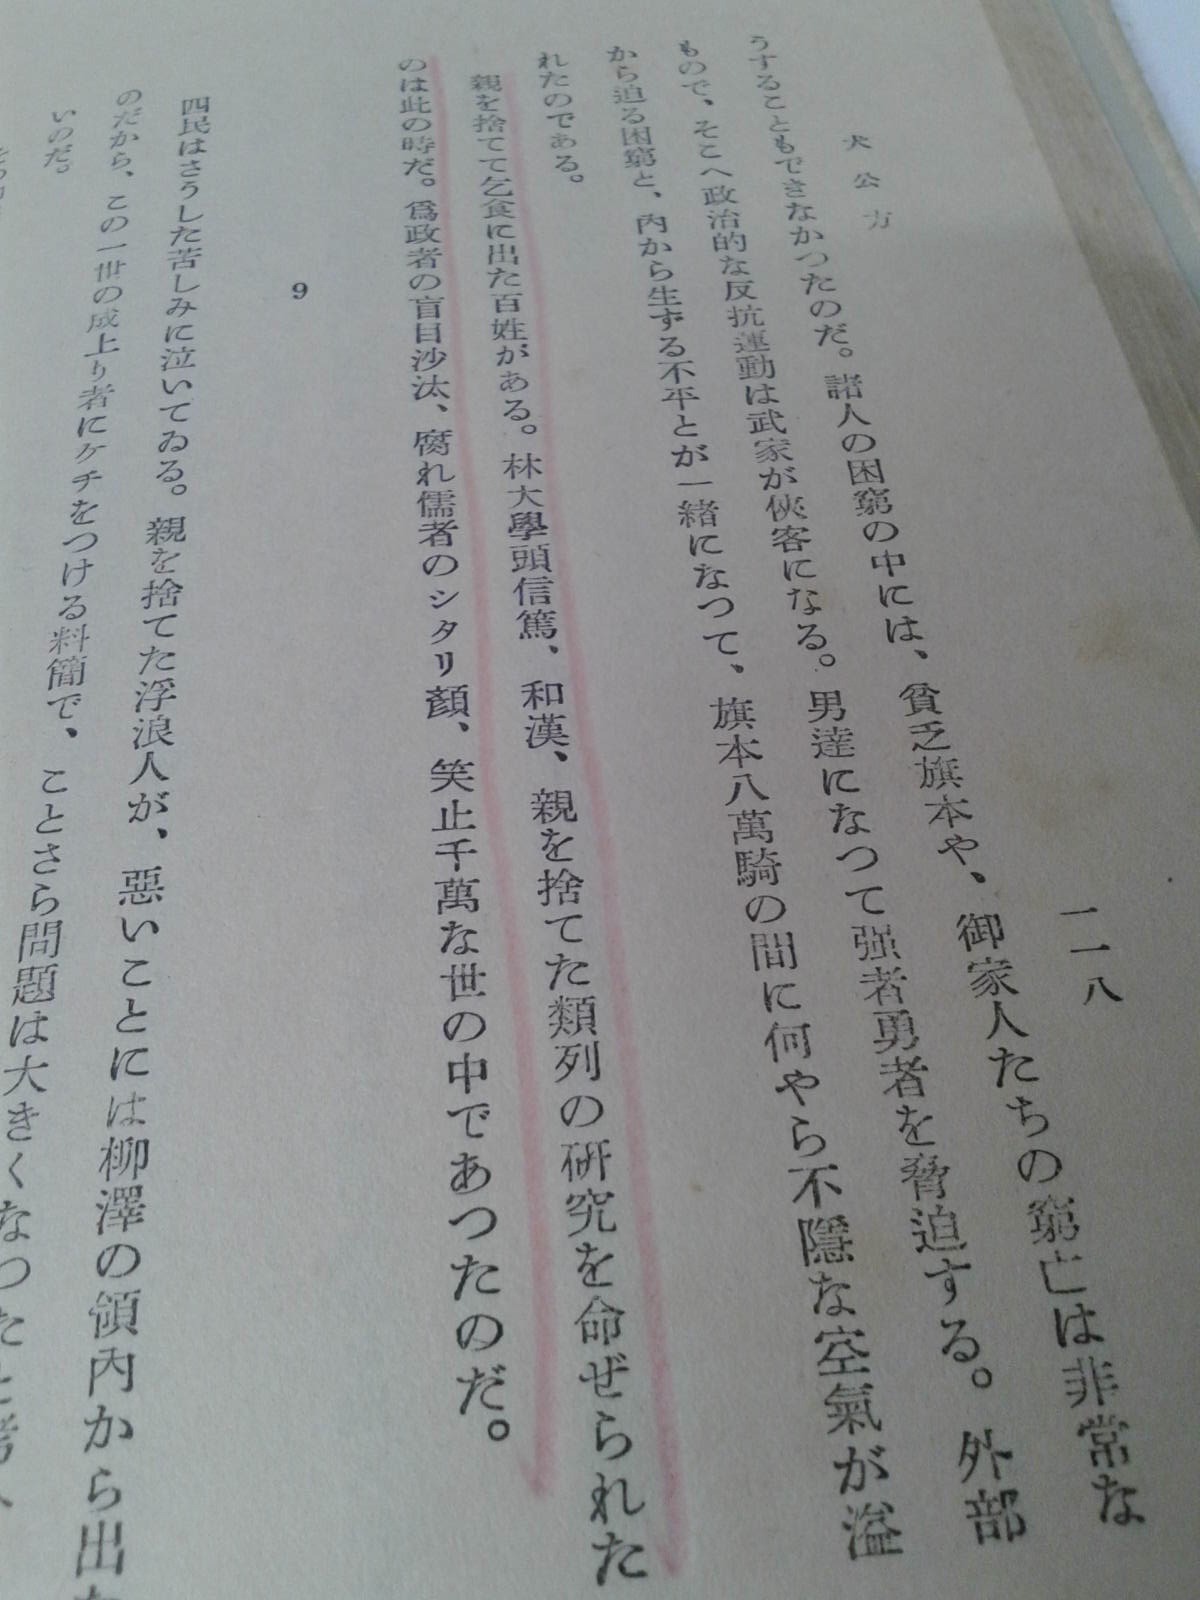 犬公方
一一八
うすることもできなかつたのだ。諸人の困窮の中には、貧乏旗本や、御家人たちの窮亡は非常な
もので、そこへ政治的な反抗運動は武家が俠客になる。男達になつて强者勇者を脅迫する。外部
から迫る困窮と、內から生ずる不平とが一緒になつて、旗本八萬騎の間に何やら不隱な空氣が溢
れたのである。
親を捨てて乞食に出た百姓がある。林大學頭信篤、和漢、親を捨てた類列の硏究を命ぜられた
のは此の時だ。爲政者の盲目沙汰、腐れ儒者のシタリ顏、笑止千萬な世の中であつたのだ。
9
四民はさうした苦しみに泣いてゐる。親を捨てた浮浪人が、惡いことには柳澤の領內から出た
のだから、この一世の成上り者にケチをつける料簡で、ことさら問題は大きくなつたと考へ
いのだ。